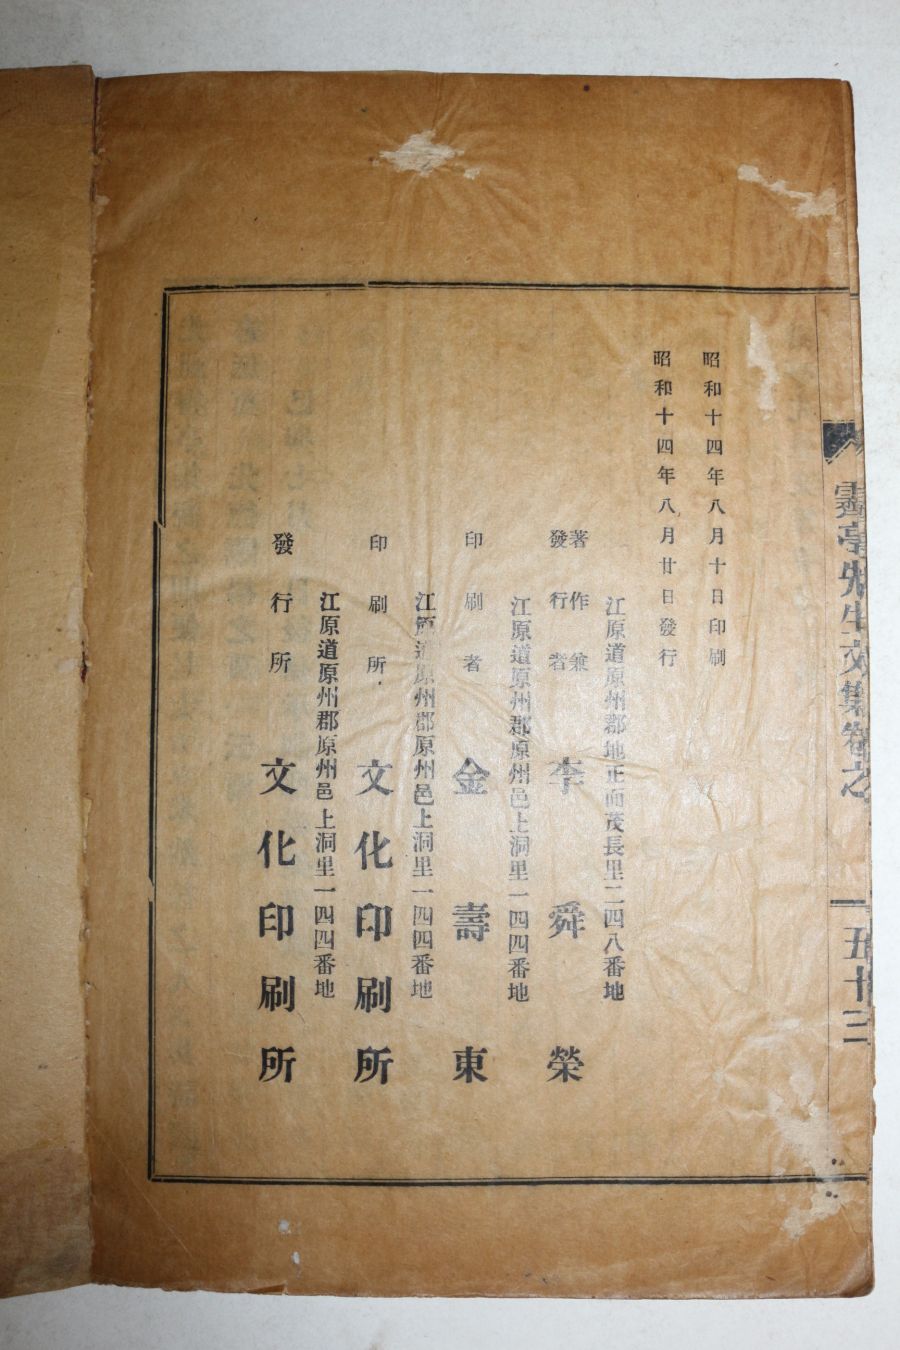 昭和十四年八月十日印刷
昭和十四年八月廿日發行
江原道原州郡地正面茂長里二四八番地
著作兼
發行者 李舜榮
江原道原州郡原州邑上洞里一四四番地
印刷者 金壽東
江原道原州郡原州邑上洞里一四四番地
印刷所 文化印刷所
江原道原州郡原州邑上洞里一四四番地
發行所 文化印刷所
亭先生文集卷之
五十三